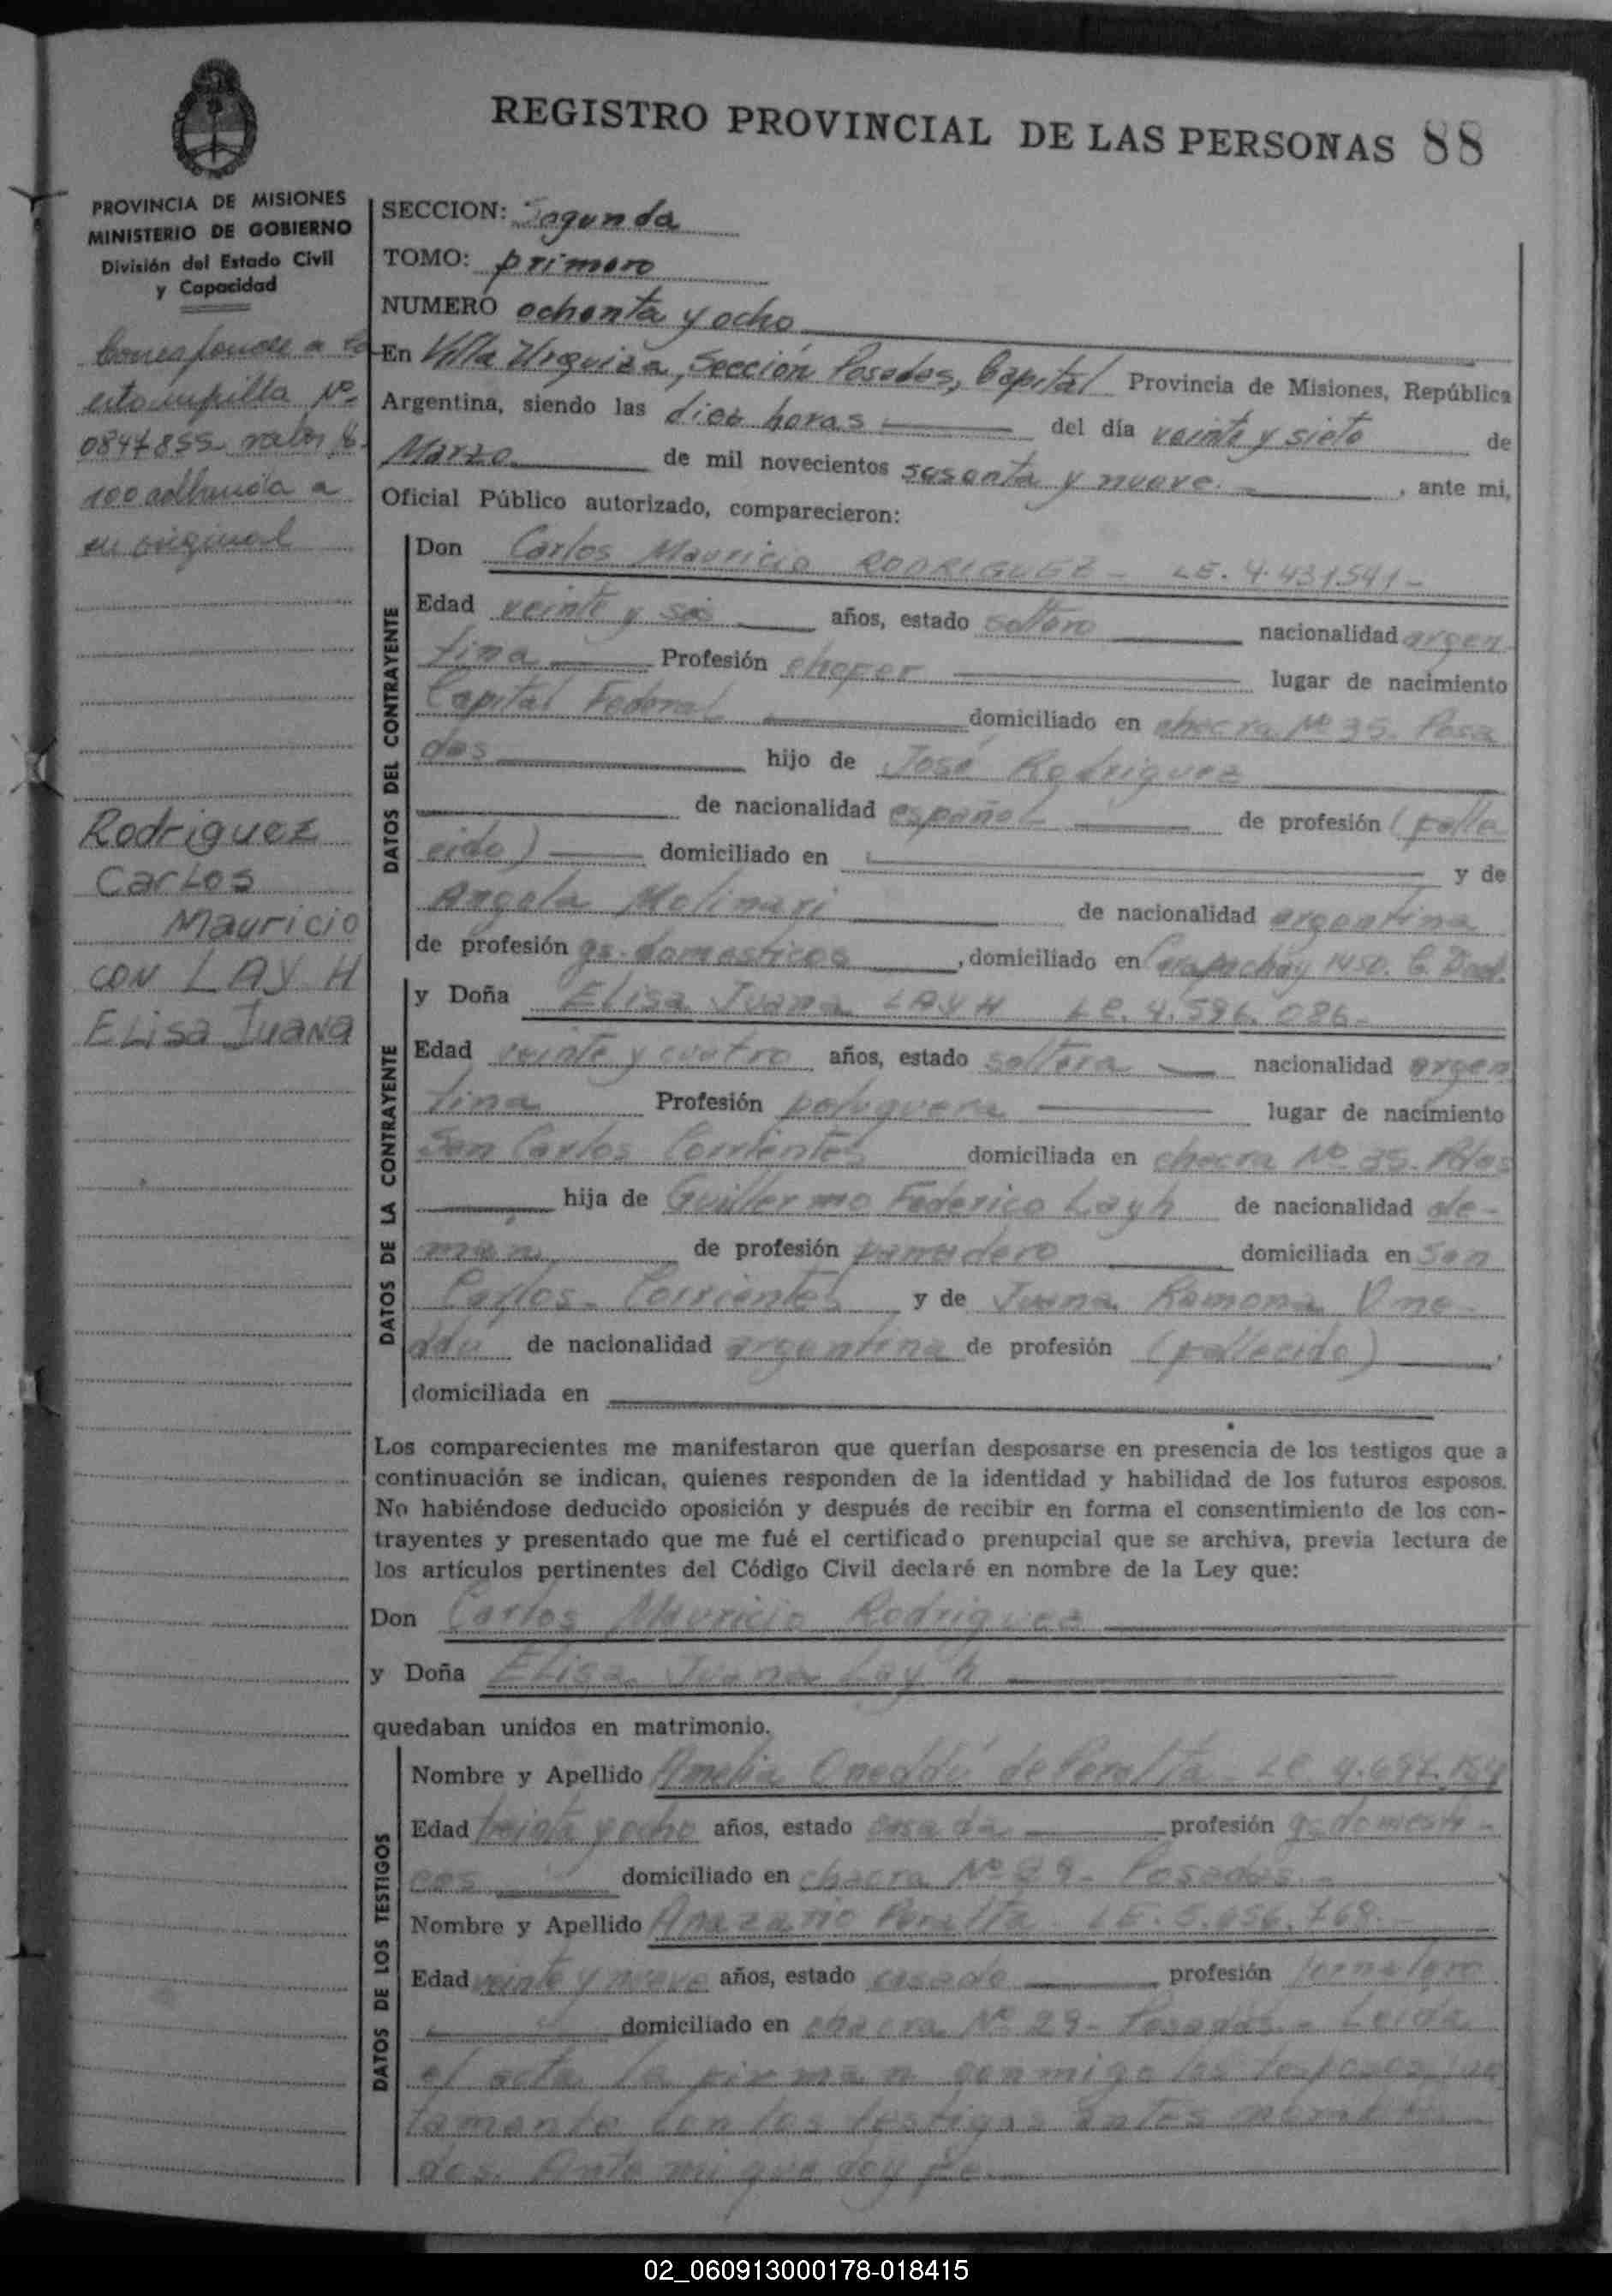 REGISTRO PROVINCIAL DE LAS PERSONAS 88
PROVINCIA DE MISIONES
MINISTERIO DE GOBIERNO
División del Estado Civil
y Capacidad
Corresponde a la
estampilla Nº
0847855 valor $
100 adherida a
su original
Rodriguez
Carlos
Mauricio
con LAYH
Elisa Juana
SECCION: Segunda
TOMO: primero
NUMERO ochenta y ocho
En Villa Urquiza, Sección Posadas, Capital Provincia de Misiones, República
Argentina, siendo las diez horas del día veinte y siete de
Marzo de mil novecientos sesenta y nueve. , ante mi,
Oficial Público autorizado, comparecieron:
DATOS DEL CONTRAYENTE
Don Carlos Mauricio RODRIGUEZ - LE. 4.431.541-
Edad veinte y seis años, estado soltero nacionalidad argen
tina Profesión chofer lugar de nacimiento
Capital Federal domiciliado en chacra Nº 35. Posa
das hijo de José Rodriguez
de nacionalidad español de profesión (falle
cido) domiciliado en y de
Angela Molinari de nacionalidad argentina
de profesión qs. domesticos , domiciliado en 1450.
DATOS DE LA CONTRAYENTE
y Doña Elisa Juana LAYH LC. 4.596.086-
Edad veinte y cuatro años, estado soltera nacionalidad argen
tina Profesión peluquera lugar de nacimiento
San Carlos Corrientes domiciliada en chacra Nº 35. Pdas
hija de Guillermo Federico Layh de nacionalidad ale-
man de profesión panadero domiciliada en San
Carlos - Corrientes y de Juana Ramona One-
ddu de nacionalidad argentina de profesión (fallecida)
domiciliada en
Los comparecientes me manifestaron que querían desposarse en presencia de los testigos que a
continuación se indican, quienes responden de la identidad y habilidad de los futuros esposos.
No habiéndose deducido oposición y después de recibir en forma el consentimiento de los con-
trayentes y presentado que me fué el certificado prenupcial que se archiva, previa lectura de
los artículos pertinentes del Código Civil declaré en nombre de la Ley que:
Don Carlos Mauricio Rodriguez
y Doña Elisa Juana Layh
quedaban unidos en matrimonio.
DATOS DE LOS TESTIGOS
Nombre y Apellido Amelia Oneddú de Peralta - LC
Edad años, estado casada profesión qs domesti-
cos domiciliado en chacra Nº 29 - Posadas -
Nombre y Apellido Anazario Peralta LE. 5.656.768.
Edad veinte y nueve años, estado casado profesión jornalero
domiciliado en chacra Nº 29 - Posadas - Leida
el acta la firman conmigo los esposos jun
tamente con los testigos antes nombra
dos. Ante mi que doy fe.
02_060913000178-018415